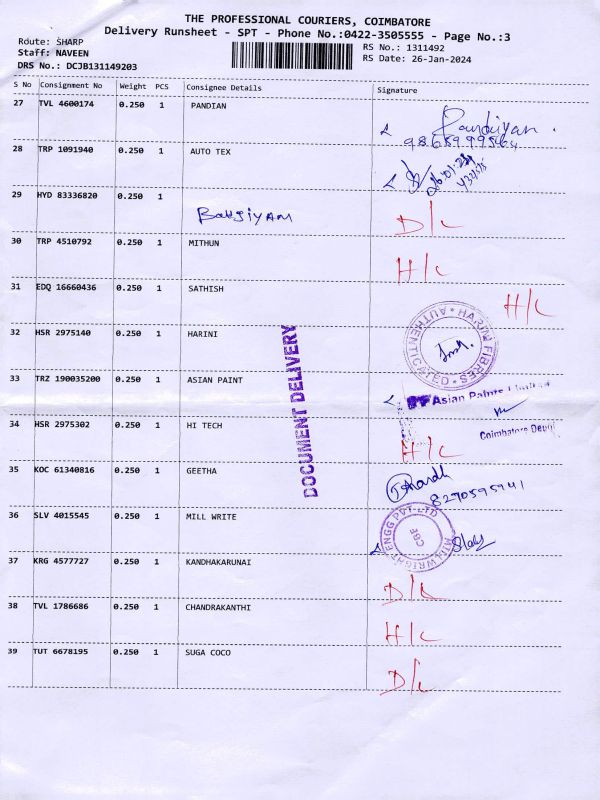 THE PROFESSIONAL COURIERS, COIMBATORE
Delivery Runsheet - SPT - Phone No.:0422-3505555 - Page No.:3
Route: SHARP
Staff: NAVEEN
DRS No.: DCJB131149203
RS No.: 1311492
RS Date: 26-Jan-2024
S No Consignment No Weight PCS Consignee Details Signature
27 TVL 4600174 0.250 1 PANDIAN Pandiyan.
28 TRP 1091940 0.250 1 AUTO TEX
29 HYD 83336820 0.250 1 D/c
30 TRP 4510792 0.250 1 MITHUN H/c
31 EDQ 16660436 0.250 1 SATHISH H/c
32 HSR 2975140 0.250 1 HARINI HARINI FIBRES * AUTHENTICATED *
33 TRZ 190035200 0.250 1 ASIAN PAINT Asian Paints Limited
Coimbatore Depot
34 HSR 2975302 0.250 1 HI TECH H/c
35 KOC 61340816 0.250 1 GEETHA 8270595941
36 SLV 4015545 0.250 1 MILL WRITE CBE
37 KRG 4577727 0.250 1 KANDHAKARUNAI D/c
38 TVL 1786686 0.250 1 CHANDRAKANTHI H/c
39 TUT 6678195 0.250 1 SUGA COCO D/c
DOCUMENT DELIVERY